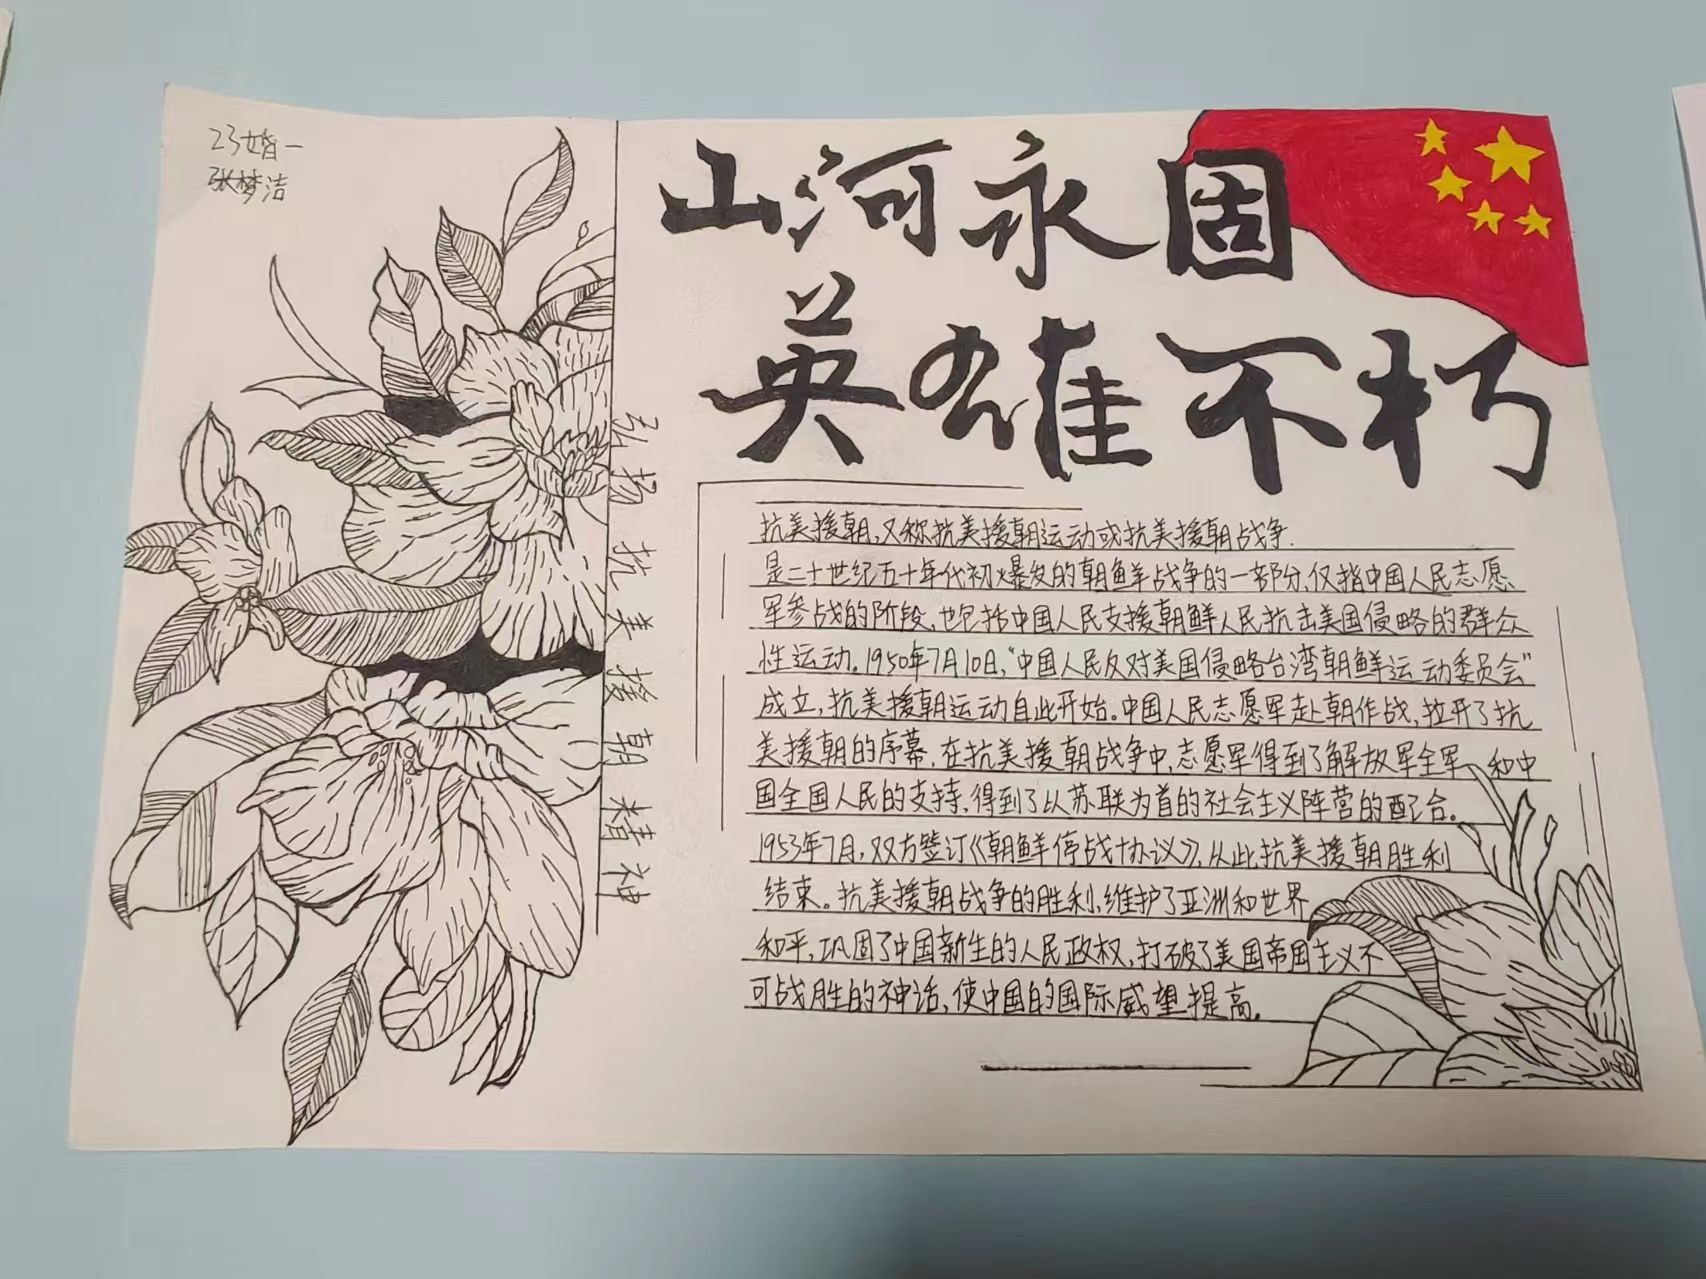 23婚一
张梦洁
山河永固
英雄不朽
弘扬抗美援朝精神
抗美援朝,又称抗美援朝运动或抗美援朝战争.
是二十世纪五十年代初爆发的朝鲜战争的一部分,仅指中国人民志愿
军参战的阶段,也包括中国人民支援朝鲜人民抗击美国侵略的群众
性运动。1950年7月10日,“中国人民反对美国侵略台湾朝鲜运动委员会”
成立,抗美援朝运动自此开始。中国人民志愿军赴朝作战,拉开了抗
美援朝的序幕,在抗美援朝战争中,志愿军得到了解放军全军 和中
国全国人民的支持,得到了以苏联为首的社会主义阵营的配合。
1953年7月,双方签订《朝鲜停战协议》,从此抗美援朝胜利
结束。抗美援朝战争的胜利,维护了亚洲和世界
和平,巩固了中国新生的人民政权,打破了美国帝国主义不
可战胜的神话,使中国的国际威望提高。